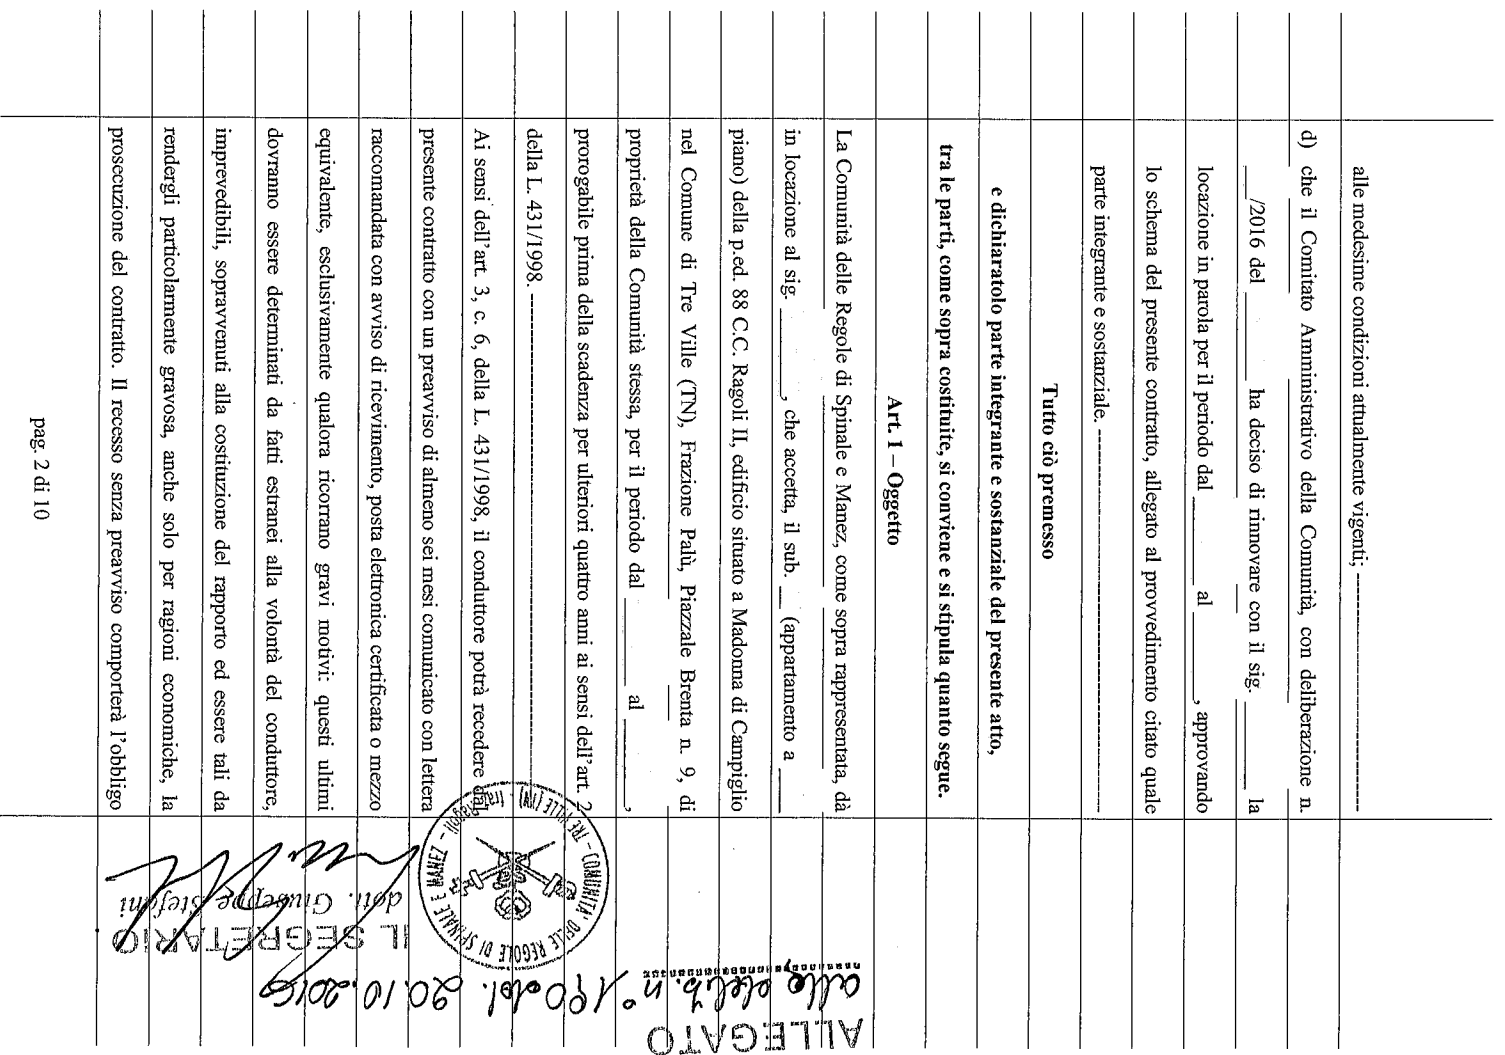 alle medesime condizioni attualmente vigenti; ------------------------------
d) che il Comitato Amministrativo della Comunità, con deliberazione n.
___/2016 del ________ ha deciso di rinnovare con il sig. ________ la
locazione in parola per il periodo dal ________ al ________, approvando
lo schema del presente contratto, allegato al provvedimento citato quale
parte integrante e sostanziale. ------------------------------------------------
Tutto ciò premesso
e dichiaratolo parte integrante e sostanziale del presente atto,
tra le parti, come sopra costituite, si conviene e si stipula quanto segue.
Art. 1 – Oggetto
La Comunità delle Regole di Spinale e Manez, come sopra rappresentata, dà
in locazione al sig. ________, che accetta, il sub. __ (appartamento a ____
piano) della p.ed. 88 C.C. Ragoli II, edificio situato a Madonna di Campiglio
nel Comune di Tre Ville (TN), Frazione Palù, Piazzale Brenta n. 9, di
proprietà della Comunità stessa, per il periodo dal ________ al ________,
prorogabile prima della scadenza per ulteriori quattro anni ai sensi dell'art. 2
della L. 431/1998. ------------------------------------------------
Ai sensi dell'art. 3, c. 6, della L. 431/1998, il conduttore potrà recedere dal
presente contratto con un preavviso di almeno sei mesi comunicato con lettera
raccomandata con avviso di ricevimento, posta elettronica certificata o mezzo
equivalente, esclusivamente qualora ricorrano gravi motivi: questi ultimi
dovranno essere determinati da fatti estranei alla volontà del conduttore,
imprevedibili, sopravvenuti alla costituzione del rapporto ed essere tali da
rendergli particolarmente gravosa, anche solo per ragioni economiche, la
prosecuzione del contratto. Il recesso senza preavviso comporterà l'obbligo
pag. 2 di 10
ALLEGATO
alla delib. n° 190 del. 20.10.2016
COMUNITA' DELLE REGOLE DI SPINALE E MANEZ - TRE VILLE (TN) - (fraz. Ragoli)
IL SEGRETARIO
dott. Giuseppe Stefani